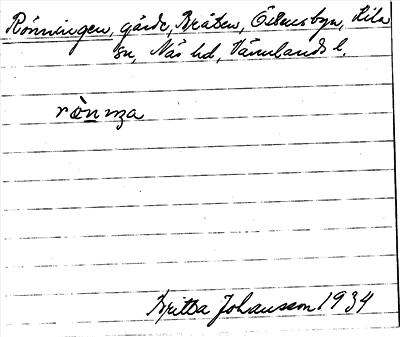 Rönningen, gärde, Bråten, Östensbyn, Kila
sn, Näs hd, Värmlands l.
rònnga
Britta Johansson 1934